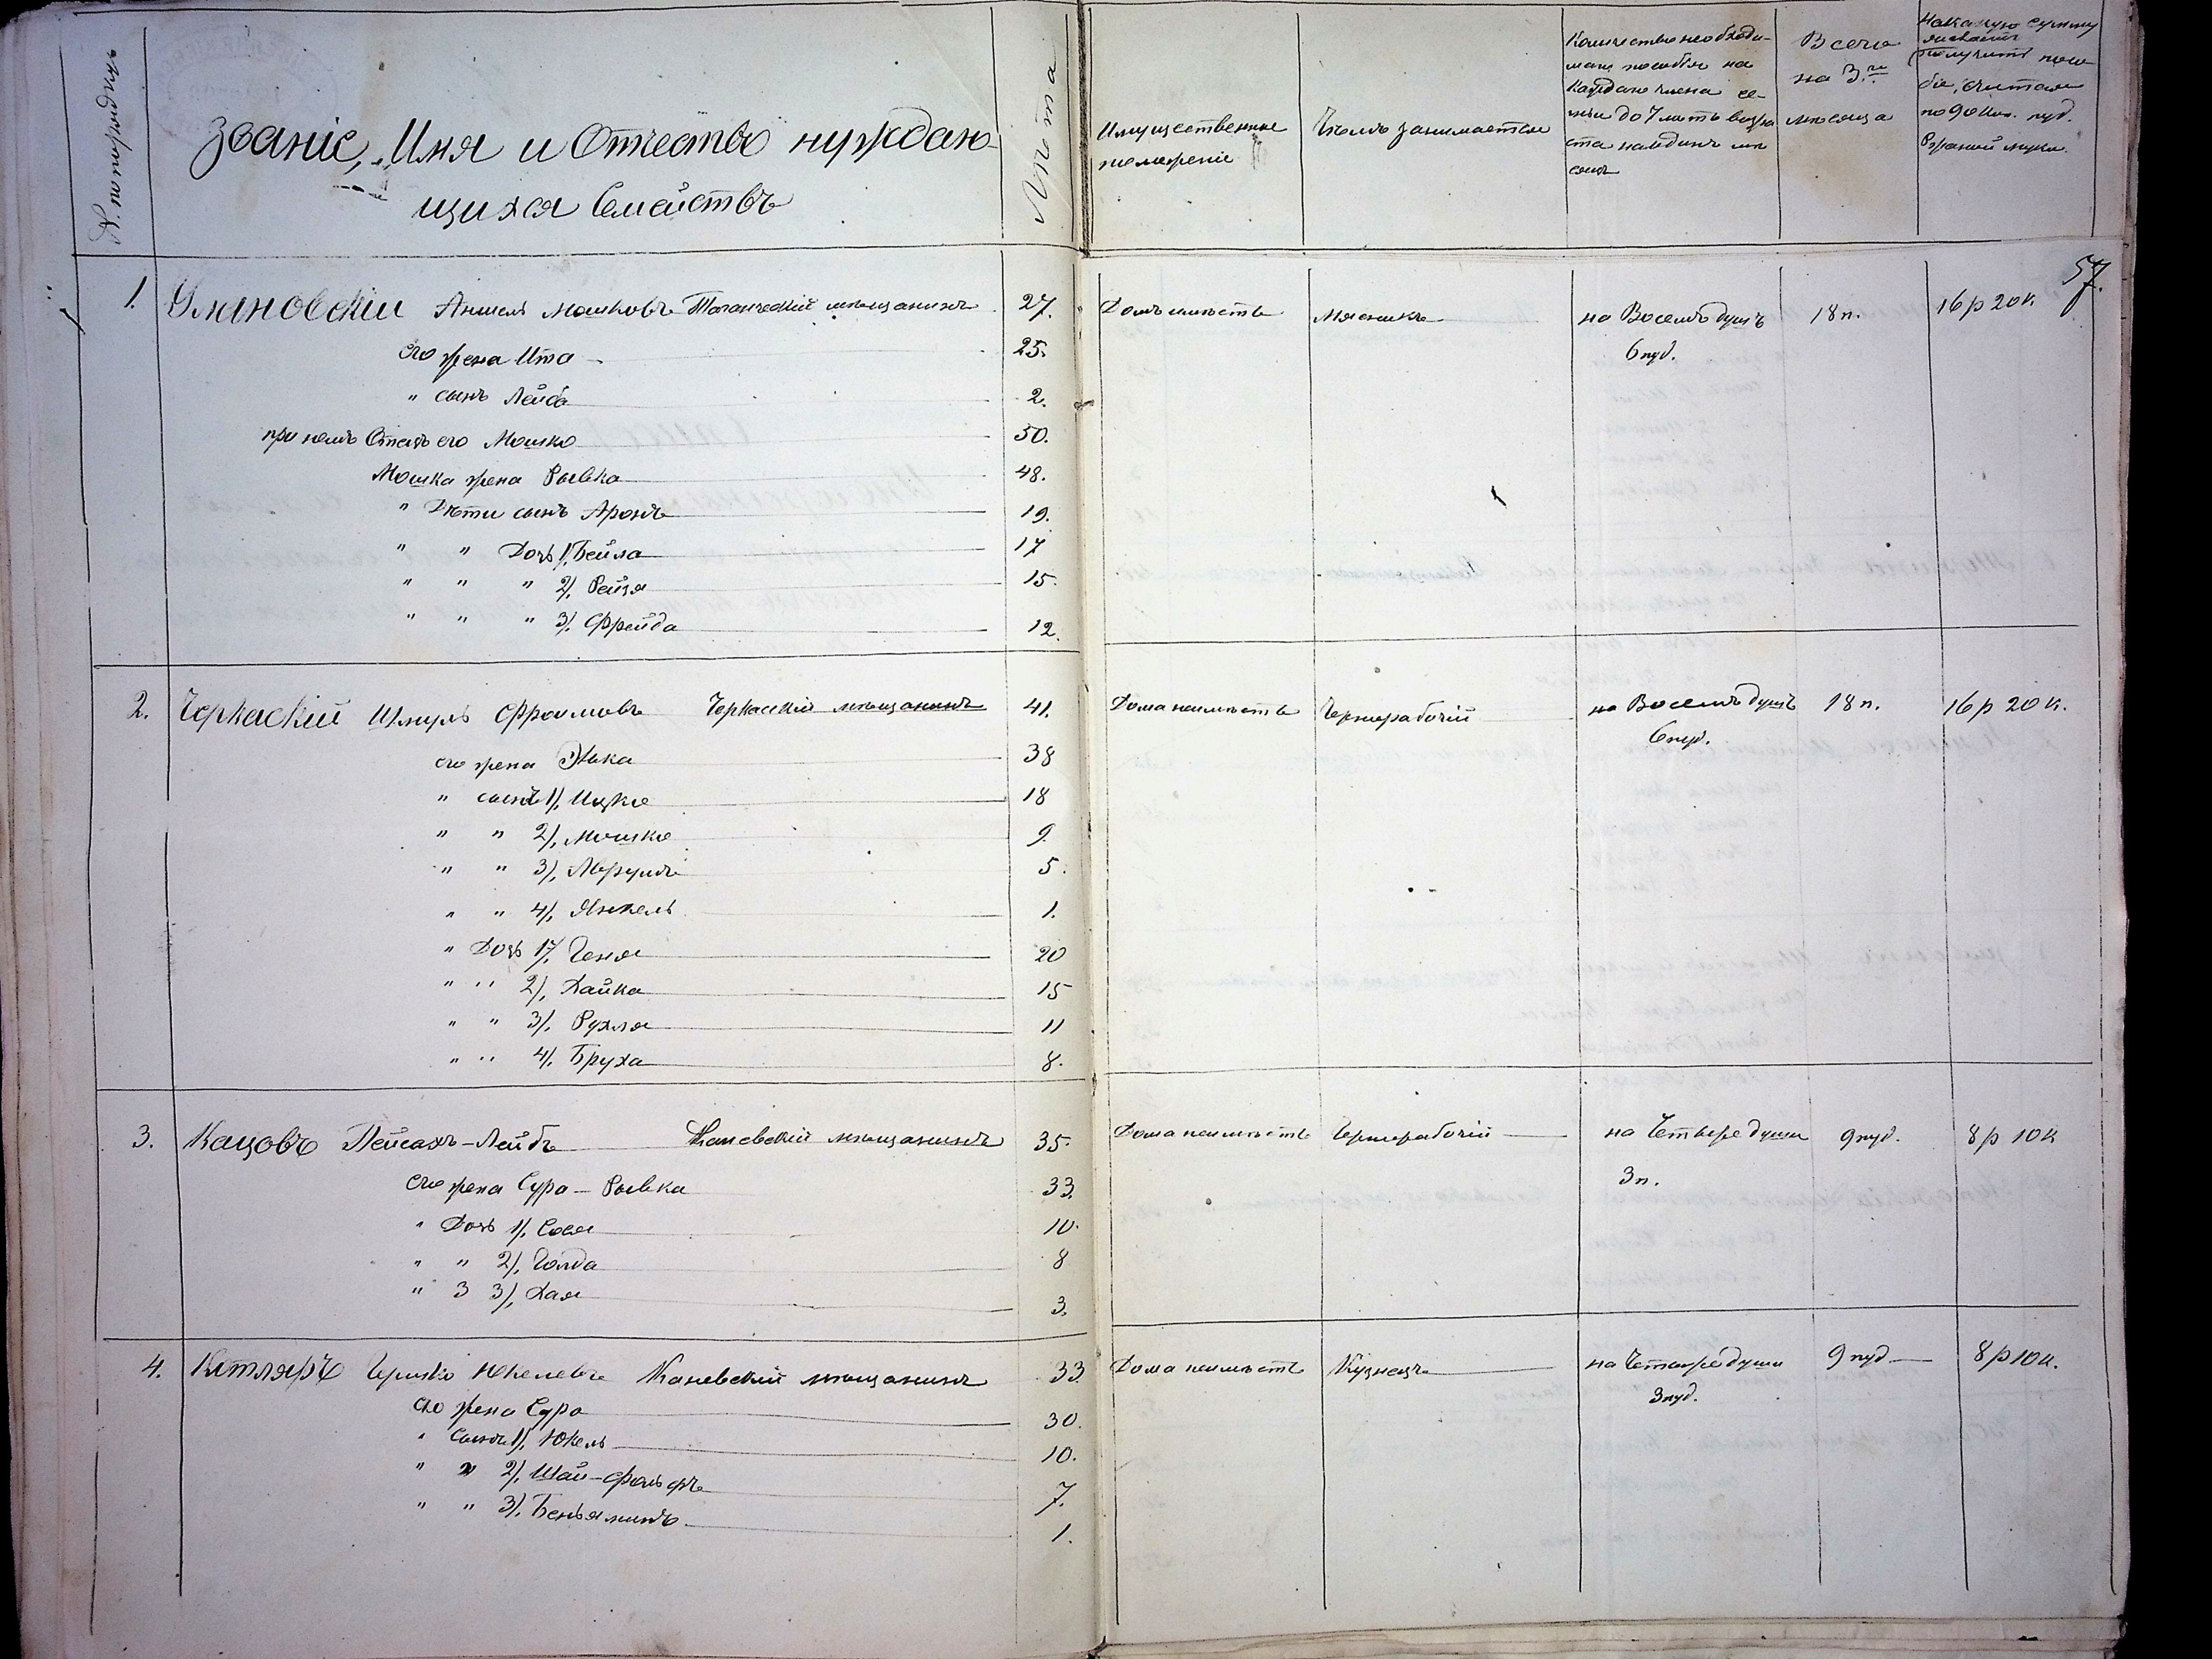 № по порядку
Званіе, Имя и Отчество нуждаю-
щихся Семействъ
Лѣта
Имущественное
положеніе
Чѣмъ занимается
Количество необходи-
маго пособія на
Каждаго члена се-
мьи до 7 лѣтъ возра
ста на одинъ мѣ
сяцъ
Всего
на 3.
мѣсяца
На какую сумму
получитъ посо
біе, считая
по 90 коп. пуд.
Ржаной муки.
57.
1. Улановскій Аншель Мошковъ Таганческій мѣщанинъ 27. Домъ имѣетъ Мясникъ на Восемь душъ 18 п. 16 р 20 к.
6 пуд.
его жена Ита 25.
" сынъ Лейба 2.
при немъ Отецъ его Мошко 50.
Мошка жена Рывка 48.
" Дѣти сынъ Аронъ 19.
" " Дочь 1/, Бейла 17
" " " 2/, Рейзя 15.
" " " 3/, Фрейда 12.
2. Черкаскій Шмуль Фроимовъ Черкаскій мѣщанинъ 41. Дома неимѣетъ Чернорабочій на Восемь душъ 18 п. 16 р 20 к.
6 пуд.
его жена Элька 38
" сынъ 1/, Ицко 18
" " 2/, Мошко 9
" " 3/, 5.
" " 4/, Янкель 1.
" Дочь 1/, Геня 20
" " 2/, Хайка 15
" " 3/, Рухля 11
" " 4/, Бруха 8.
3. Кацовъ Пейсахъ-Лейбъ Каневскій мѣщанинъ 35. Дома неимѣетъ Чернорабочій на Четыре души 9 пуд. 8 р 10 к
3 п.
его жена Сура-Рывка 33.
" Дочь 1/, Сося 10.
" " 2/, Голда 8
" 3 3/, Хая 3.
4. Котляръ Гершко Юкелевъ Каневскій мѣщанинъ 33 Дома неимѣетъ Кузнецъ на Четыре души 9 пуд 8 р 10 к.
3 пуд.
его жена Сура 30.
" сынъ 1/, Юкель 10.
" " 2/, Шай-Фольфъ 7.
" " 3/, Беньяминъ 1.